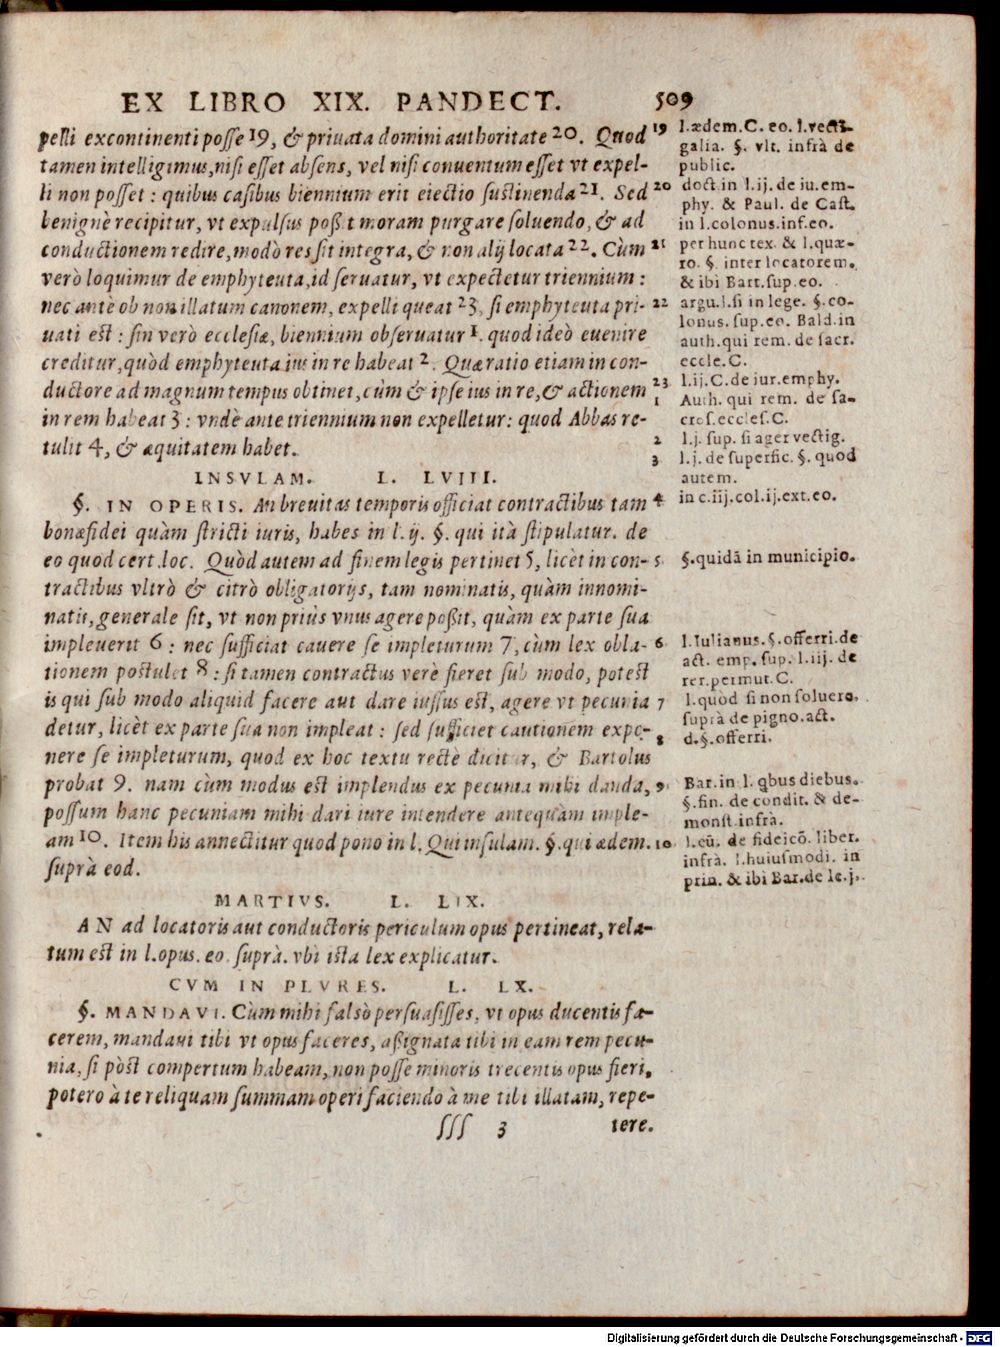 EX LIBRO XIX. PANDECT. 509
pelli excontinenti posse 19, & priuata domini authoritate 20. Quod
tamen intelligimus, nisi esset absens, vel nisi conuentum esset vt expel-
li non posset: quibus casibus biennium erit eiectio sustinenda 21. Sed
benignè recipitur, vt expulsus poßit moram purgare soluendo, & ad
conductionem redire, modò res sit integra, & non alij locata 22. Cùm
verò loquimur de emphyteuta, id seruatur, vt expectetur triennium:
nec antè ob non illatum canonem, expelli queat 23, si emphyteuta pri-
uati est: sin verò ecclesiæ, biennium obseruatur 1. quod ideò euenire
creditur, quòd emphyteuta ius in re habeat 2. Quæ ratio etiam in con-
ductore ad magnum tempus obtinet, cùm & ipse ius in re, & actionem
in rem habeat 3: vndè ante triennium non expelletur: quod Abbas re-
tulit 4, & æquitatem habet.
INSVLAM. L. LVIII.
§. IN OPERIS. An breuitas temporis officiat contractibus tam
bonæfidei quàm stricti iuris, habes in l. ij. §. qui ità stipulatur. de
eo quod cert. loc. Quòd autem ad finem legis pertinet 5, licèt in con-
tractibus vltrò & citrò obligatorijs, tam nominatis, quàm innomi-
natis, generale sit, vt non priùs vnus agere poßit, quàm ex parte sua
impleuerit 6: nec sufficiat cauere se impleturum 7, cùm lex obla-
tionem postulet 8: si tamen contractus verè fieret sub modo, potest
is qui sub modo aliquid facere aut dare iussus est, agere vt pecunia
detur, licèt ex parte sua non impleat: sed sufficiet cautionem expo-
nere se impleturum, quod ex hoc textu rectè dicitur, & Bartolus
probat 9. nam cùm modus est implendus ex pecunia mihi danda,
possum hanc pecuniam mihi dari iure intendere antequàm imple-
am 10. Item his annectitur quod pono in l. Qui insulam. §. qui ædem.
suprà eod.
MARTIVS. L. LIX.
AN ad locatoris aut conductoris periculum opus pertineat, rela-
tum est in l. opus. eo. suprà. vbi ista lex explicatur.
CVM IN PLVRES. L. LX.
§. MANDAVI. Cùm mihi falsò persuasisses, vt opus ducentis fa-
cerem, mandaui tibi vt opus faceres, aßignata tibi in eam rem pecu-
nia, si pòst compertum habeam, non posse minoris trecentis opus fieri,
potero à te reliquam summam operi faciendo à me tibi illatam, repe-
sss 3 tere.
19 l. ædem. C. eo. l. vecti-
galia. §. vlt. infrà de
public.
20 doct in l. ij. de iu. em-
phy. & Paul. de Cast.
in l. colonus. inf. eo.
21 per hunc tex. & l. quæ-
ro. §. inter locatorem.
& ibi Bart. sup. eo.
22 argu. l. si in lege. §. co-
lonus. sup. eo. Bald. in
auth. qui rem. de sacr.
eccle. C.
23 l. ij. C. de iur. emphy.
1 Auth. qui rem. de sa-
cros. eccles. C.
2 l. j. sup. si ager vectig.
3 l. j. de superfic. §. quod
autem.
4 in c. iij. col. ij. ext. eo.
5 §. quidā in municipio.
6 l. Iulianus. §. offerri. de
act. emp. sup. l. iij. de
rer. permut. C.
7 l. quòd si non soluero.
suprà de pigno. act.
8 d. §. offerri.
9 Bar. in l. qbus diebus.
§. fin. de condit. & de-
monst. infrà.
10 l. eū. de fideicō. liber.
infrà. l. huiusmodi. in
prin. & ibi Bar. de le. j.
Digitalisierung gefördert durch die Deutsche Forschungsgemeinschaft - DFG